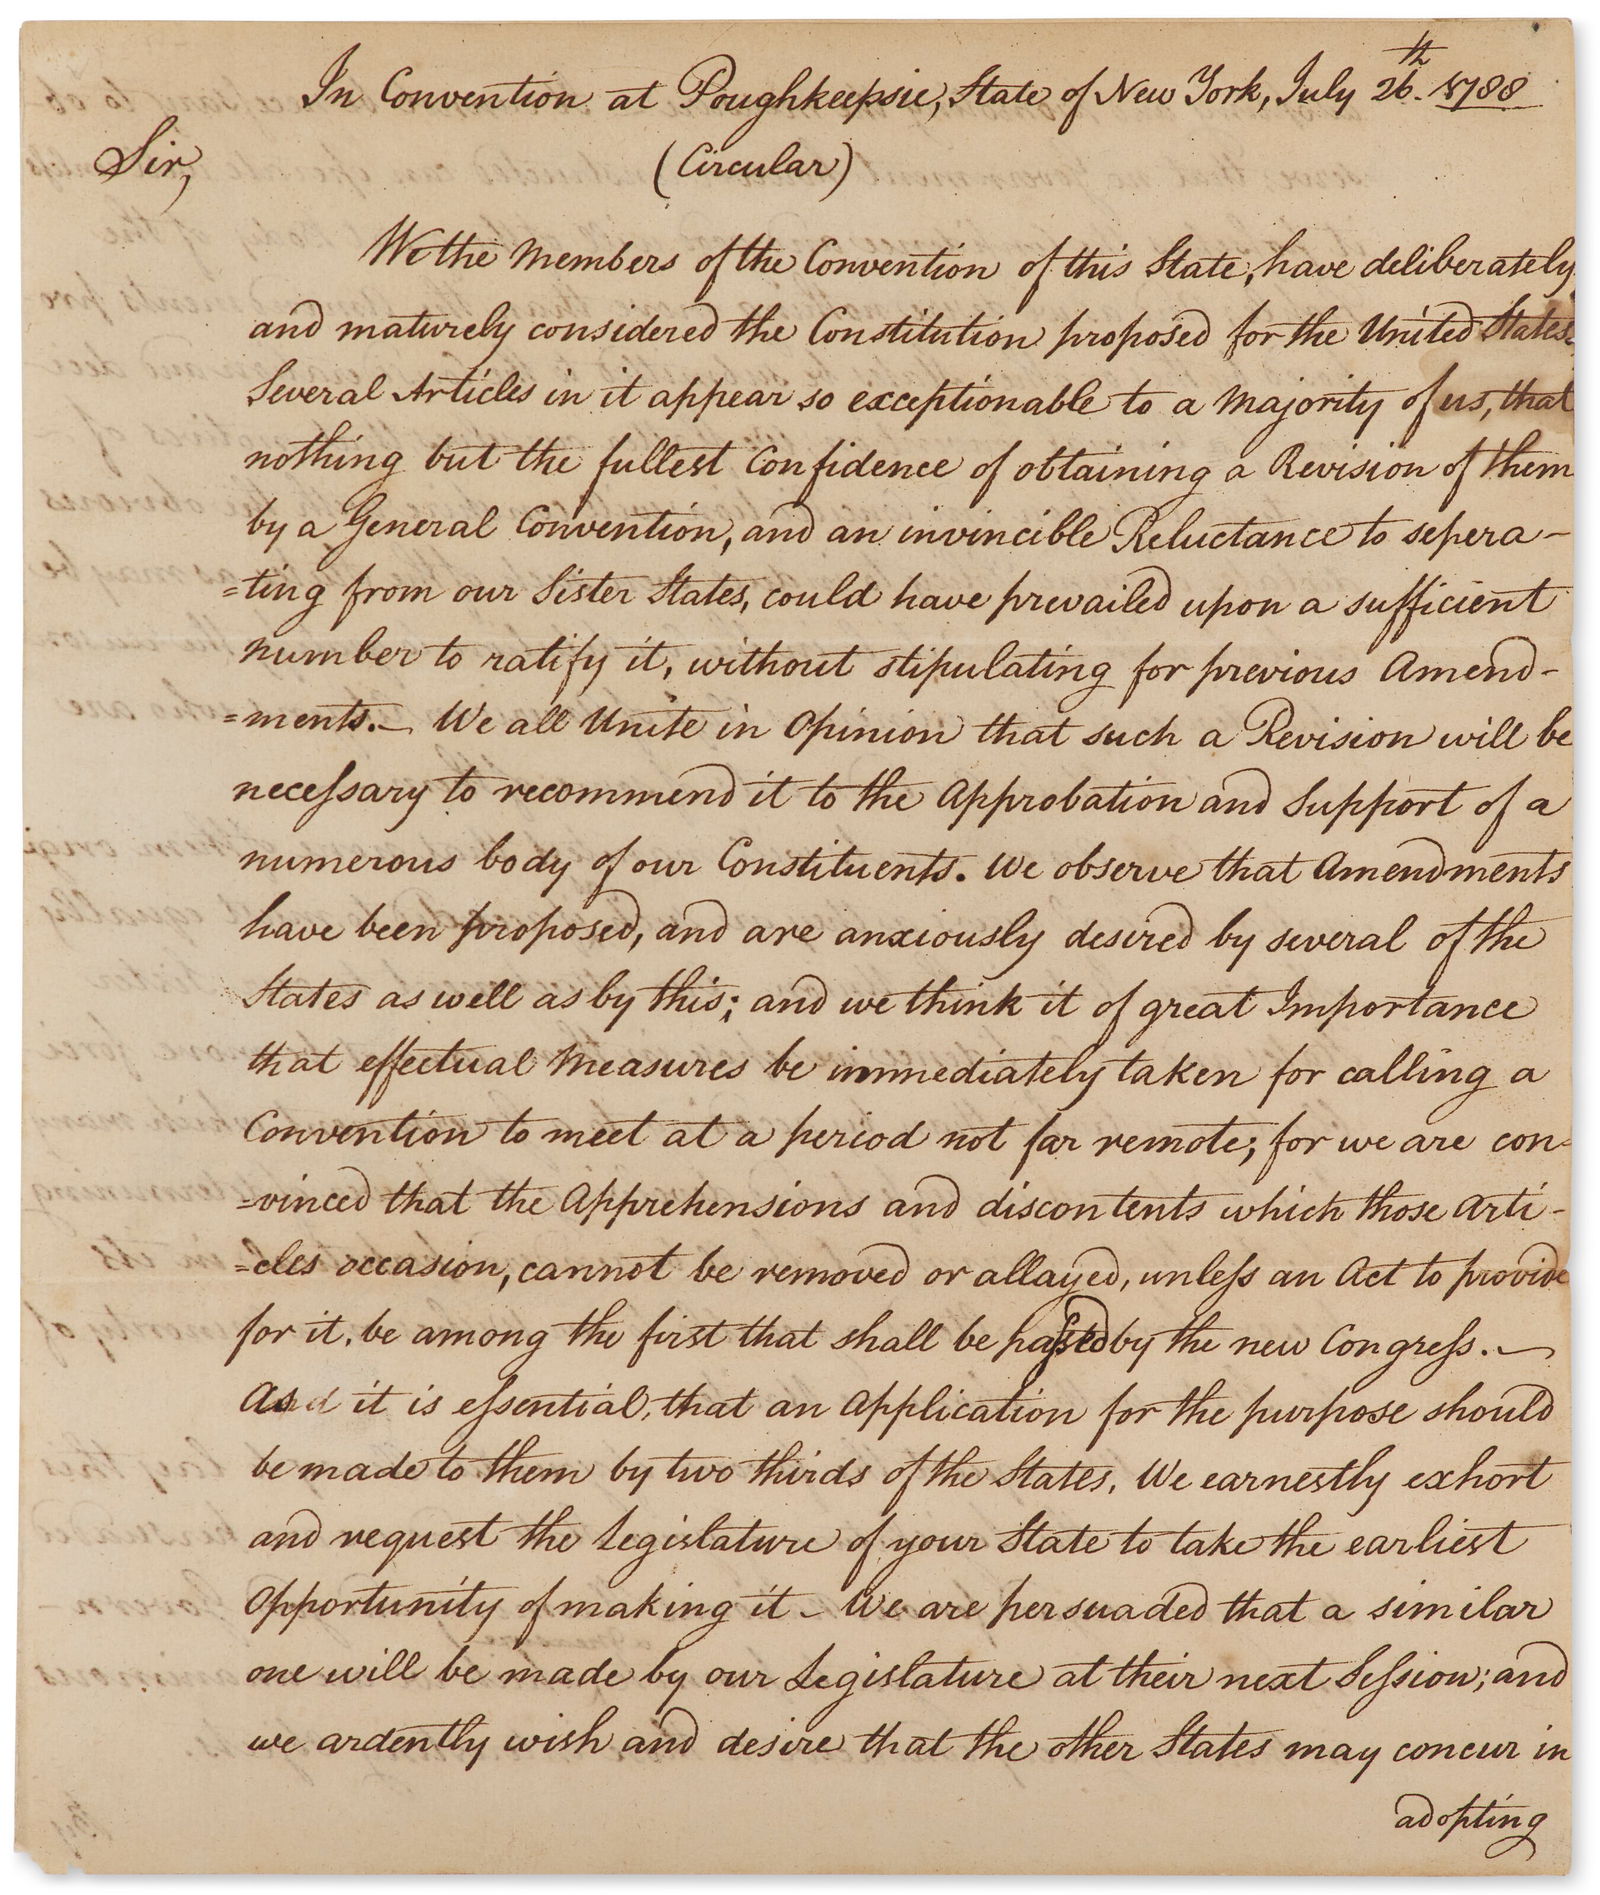 In Convention at Poughkeepsie, State of New York, July 26.th 1788
(Circular)
Sir,
We the Members of the Convention of this State, have deliberately
and maturely considered the Constitution proposed for the United States.
Several Articles in it appear so exceptionable to a Majority of us, that
nothing but the fullest Confidence of obtaining a Revision of them
by a General Convention, and an invincible Reluctance to sepera-
=ting from our Sister States, could have prevailed upon a sufficient
number to ratify it, without stipulating for previous Amend-
=ments.— We all Unite in Opinion that such a Revision will be
necessary to recommend it to the Approbation and Support of a
numerous body of our Constituents. We observe that Amendments
have been proposed, and are anxiously desired by several of the
States as well as by this; and we think it of great Importance
that effectual Measures be immediately taken for calling a
Convention to meet at a period not far remote; for we are con-
=vinced that the Apprehensions and discontents which those Arti-
=cles occasion, cannot be removed or allayed, unless an Act to provide
for it, be among the first that shall be passed by the new Congress.—
As it is essential, that an Application for the purpose should
be made to them by two thirds of the States, We earnestly exhort
and request the Legislature of your State to take the earliest
Opportunity of making it – We are persuaded that a similar
one will be made by our Legislature at their next Session; and
we ardently wish and desire that the other States may concur in
adopting